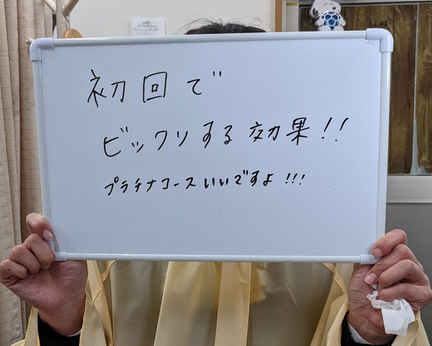 初回で
ビックリする効果!!
プラチナコースいいですよ!!!